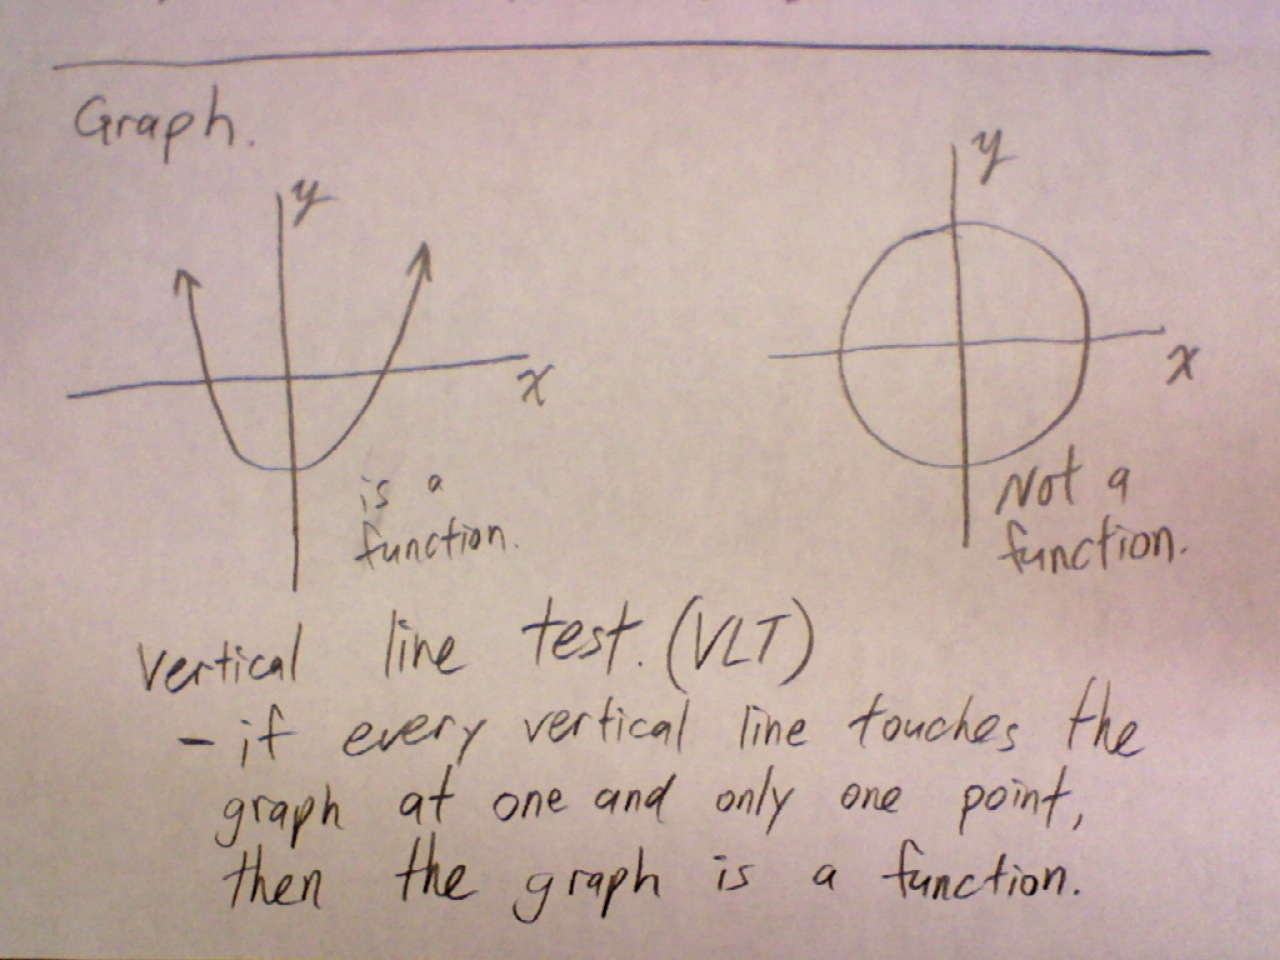 Graph.
y
x
is a
function.
y
x
Not a
function.
Vertical line test. (VLT)
- if every vertical line touches the
graph at one and only one point,
then the graph is a function.